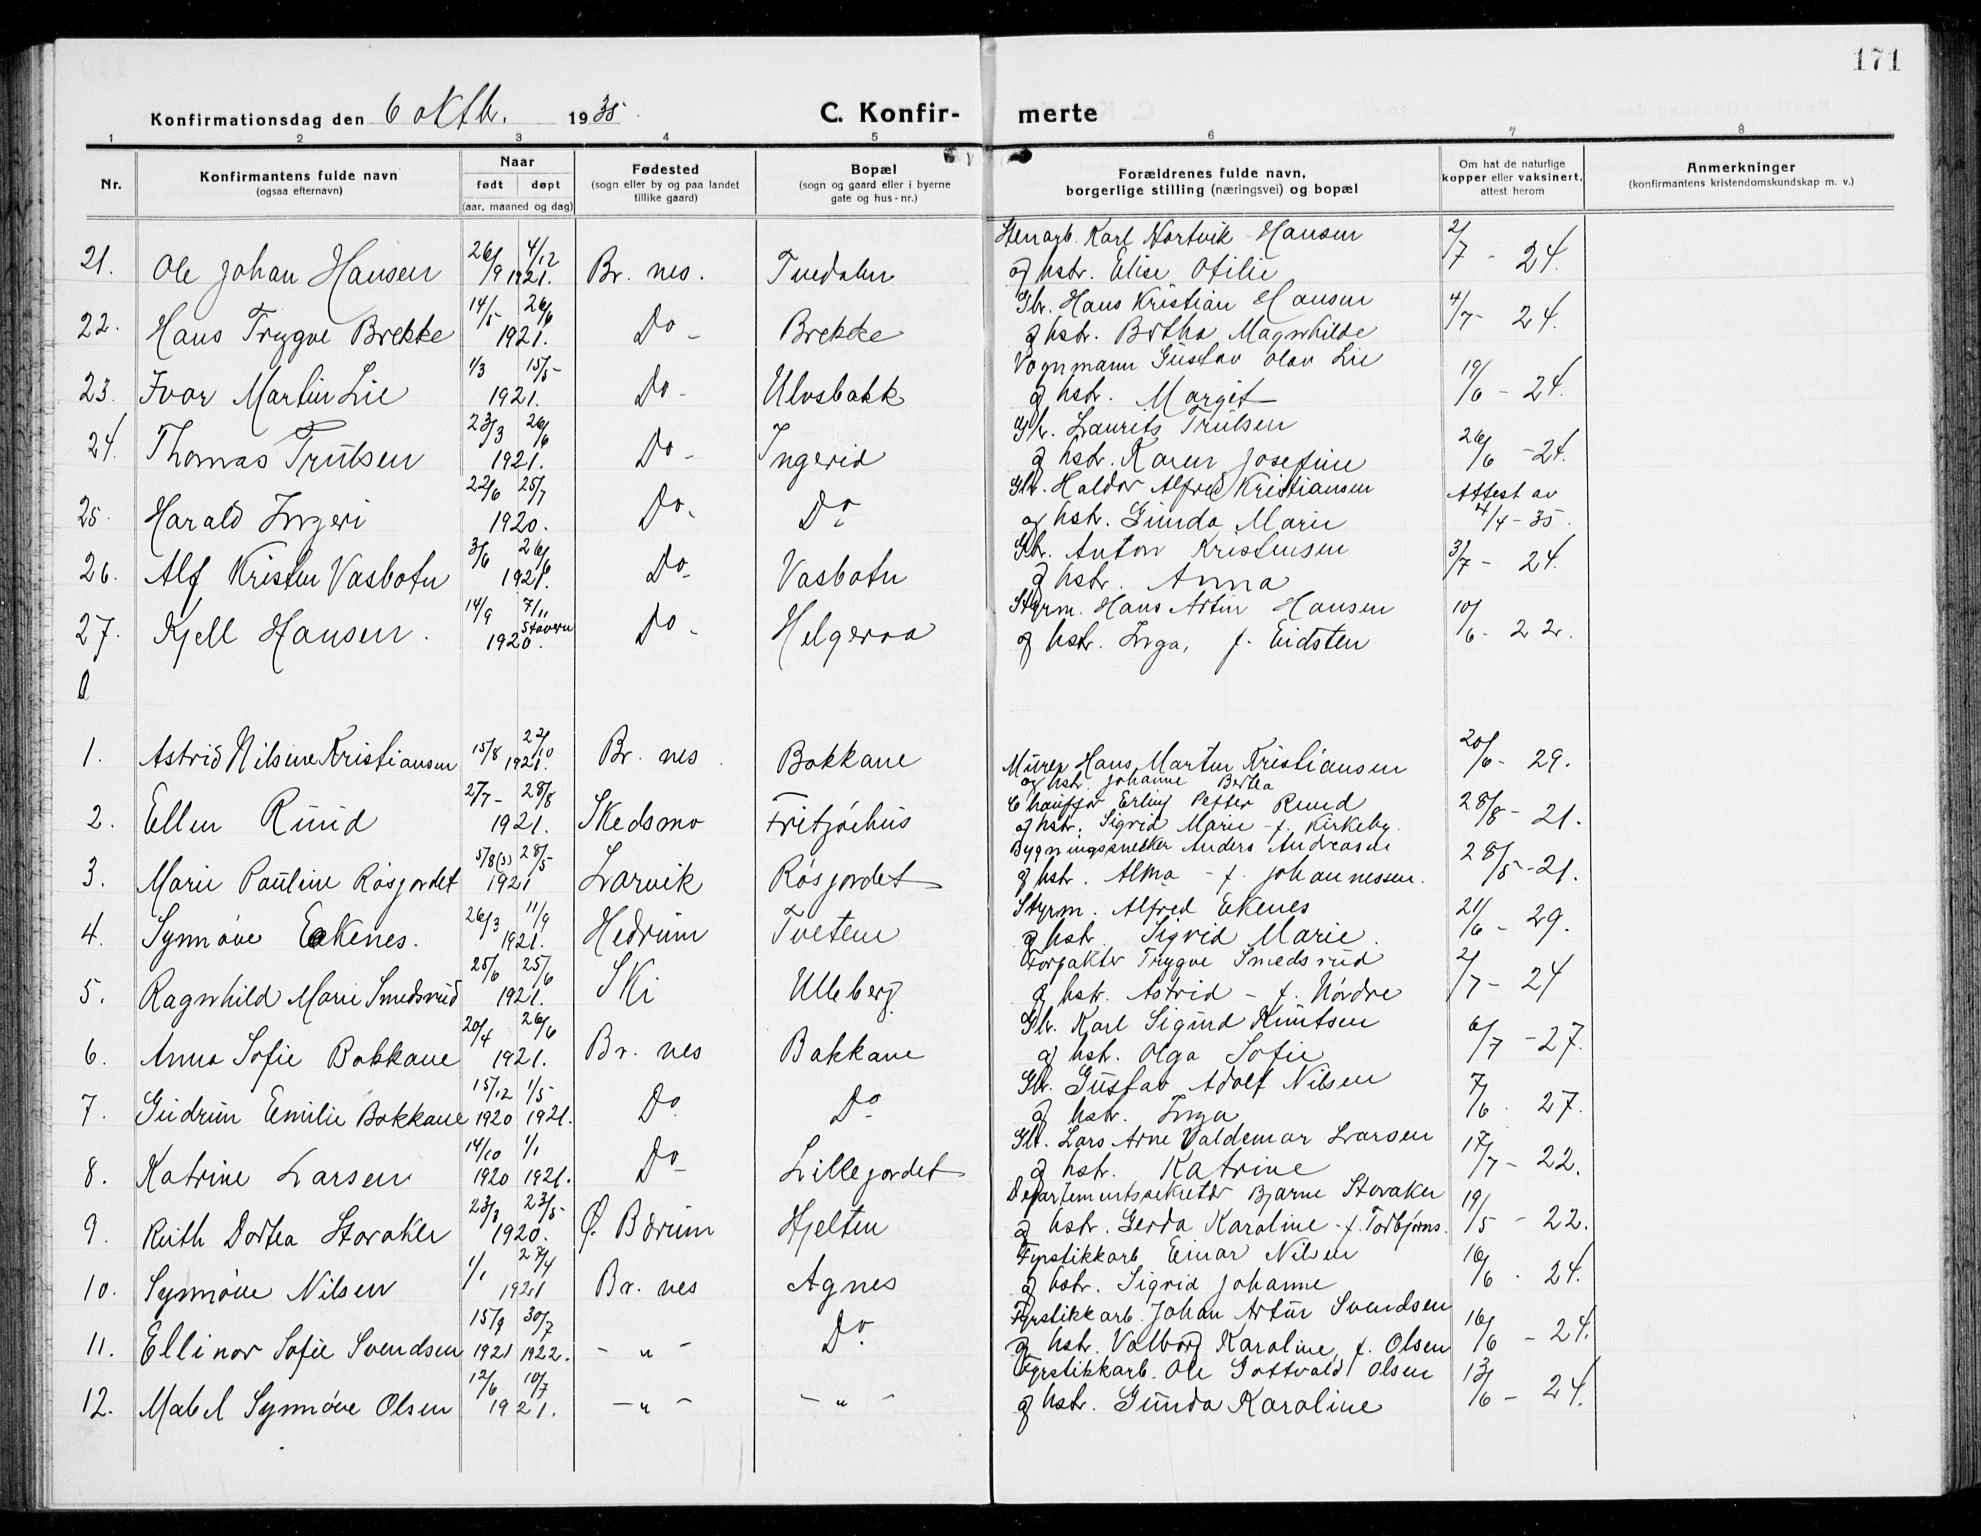 171
Konfirmationsdag den 6 oktbr. 1935. C. Konfir- merte
1 2 3 4 5 6 7 8
Nr. Konfirmantens fulde navn (ogsaa efternavn) Naar født døpt (aar, maaned og dag) Fødested (sogn eller by og paa landet tillike gaard) Bopæl (sogn og gaard eller i byerne gate og hus-nr.) Forældrenes fulde navn, borgerlige stilling (næringsvei) og bopæl Om hat de naturlige kopper eller vaksinert, attest herom Anmerkninger (konfirmantens kristendomskundskap m. v.)
21. Ole Johan Hansen 26/9 4/12 1921. Br. nes. Tvedalen Stenarb. Karl Nortvik Hansen og hstr. Elise Otilie 2/7 - 24.
22. Hans Trygve Brekke 14/5 26/6 1921. Do - Brekke Gbr. Hans Kristian Hansen og hstr. Bertha Magnhilde 4/7 - 24.
23. Ivar Martin Lie 1/3 15/5 - 1921. Do - Ulvsbakk Vognmann Gustav Olav Lie og hstr. Margit 19/6 - 24.
24. Thomas Trulsen 23/3 26/6 1921. Do - Ingerid Gbr. Laurits Trulsen og hstr. Karen Josefine 26/6 - 24.
25. Harald Ingeri 22/6 25/7 1920. Do - Do - Gbr. Haldor Alfred Kristiansen og hstr. Gunda Marie Attest av 4/4 - 35.
26. Alf Kristen Vasbotn 3/6 26/6 1921. Do - Vasbotn Gbr. Anton Kristensen og hstr. Anna 3/7 - 24.
27. Kjell Hansen. 14/9 7/11 Stavern 1920. Do - Helgeroa Styrm. Hans Artur Hansen og hstr. Inga, f. Eidsten 10/6 - 22.
1. Astrid Nilsine Kristiansen 15/8 22/10 1921. Br. nes. Bakkane Murer Hans Martin Kristiansen og hstr. Johanne Bertea 20/6 - 29.
2. Ellen Ruud 27/7 - 28/8 1921. Skedsmo Fritzøehus Chauffør Erling Petter Ruud og hstr. Sigrid Marie - f. Kirkeby. 28/8 - 21.
3. Marie Pauline Røsjordet 5/8 (3) 28/5 1921 Larvik Røsjordet Bygningssnekker Anders Andreasen og hstr. Alma - f. Johannessen. 28/5 - 21.
4. Synnøve Ekenes. 26/3 11/9 1921. Hedrum Tvetene Styrm. Alfred Ekenes og hstr. Sigrid Marie. 21/6 - 29.
5. Ragnhild Marie Smedsrud 25/6 25/6 1921. Ski Ulleberg Forpakter Trygve Smedsrud og hstr. Astrid - f. Nordre 2/7 - 24
6. Anna Sofie Bakkane 20/4 26/6 1921. Br. nes Bakkane Gbr. Karl Sigurd Knutsen og hstr. Olga Sofie 6/7 - 27.
7. Gudrun Emilie Bakkane 15/12 1/5 1920 1921. Do Do Gbr. Gustav Adolf Nilsen og hstr. Inga 7/6. 27.
8. Katrine Larsen 14/10 1/1 1920 1921. Do - Lillejordet Gbr. Lars Arne Valdemar Larsen og hstr. Katrine 17/7 - 22.
9. Ruth Dortea Storaker 23/3 23/5 - 1920. Ø. Bærum Hjelten Departementssekretær Bjarne Storaker og hstr. Gerda Karoline - f. Torbjørns. 19/5 - 22.
10. Synnøve Nilsen 1/1 27/4 1921 Br. nes Agnes Fyrstikkarb. Einar Nilsen og hstr. Sigrid Johanne 16/6. 24.
11. Ellinor Sofie Svendsen 15/9 30/7 1921 1922. - " - Do. Fyrstikkarb. Johan Artur Svendsen og hstr. Valborg Karoline f. Olsen 16/6 - 24.
12. Mabel Synnøve Olsen 12/6 10/7 1921. - " - - " - Fyrstikkarb. Ole Gottvald Olsen og hstr. Gunda Karoline 13/6 - 24.